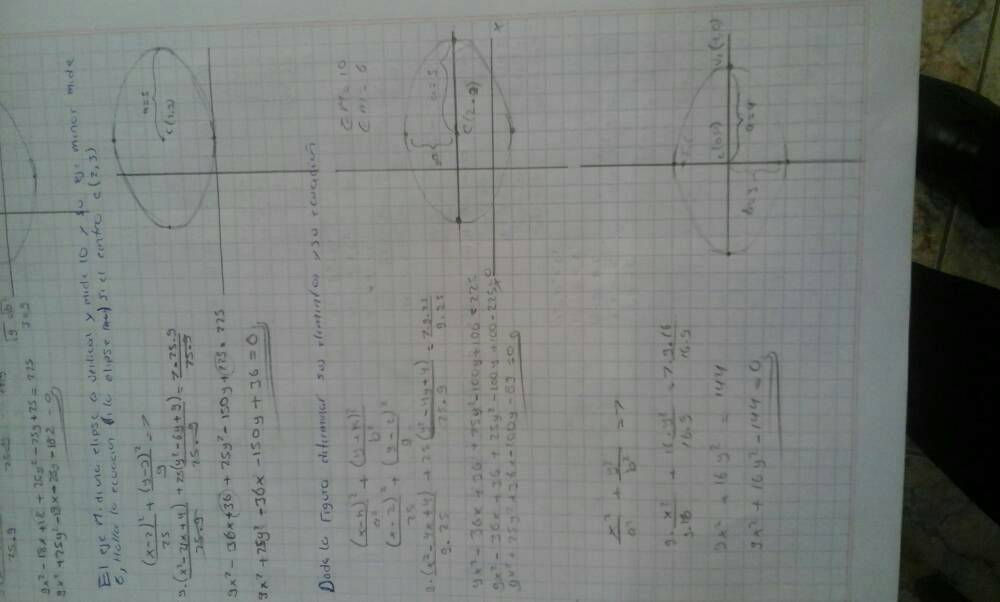 25.9
√9 √b²
3=9
9x² - 18x + 25y² - 25y + 25 = 225
El eje M. de una elipse o vertical y mide 10 y su eje menor mide
6, Hallar la ecuación de la elipse si el centro C(2,3)
(x-2)²/25 + (y-3)²/9 = 1
9.(x²-4x+4)/25.9 + 25(y²-6y+9)/25.9 = 1.25.9/25.9
9x² - 36x + 36 + 25y² - 150y + 225 = 225
9x² + 25y² - 36x - 150y + 36 = 0
a=5
C(2,3)
Dada la Figura determinar sus elementos y su ecuación
EM = 10
Em = 6
(x-h)²/a² + (y+k)²/b²
(x-2)²/25 + (y-2)²/9
9.(x²-4x+4)/9.25 + 25(y²-4y+4)/25.9 = 1.9.25/9.25
9x² - 36x + 36 + 25y² - 100y + 100 = 225
9x² - 36x + 36 + 25y² - 100y + 100 - 225 = 0
9x² + 25y² + 36x - 100y - 89 = 0
a=5
C(2-2)
x
x²/a² + y²/b² = 1
9.x²/9.16 + 16y²/16.9 = 1.9.16/16.9
9x² + 16y² = 144
9x² + 16y² - 144 = 0
C(0,0)
V1(4,0)
a=4
b=3